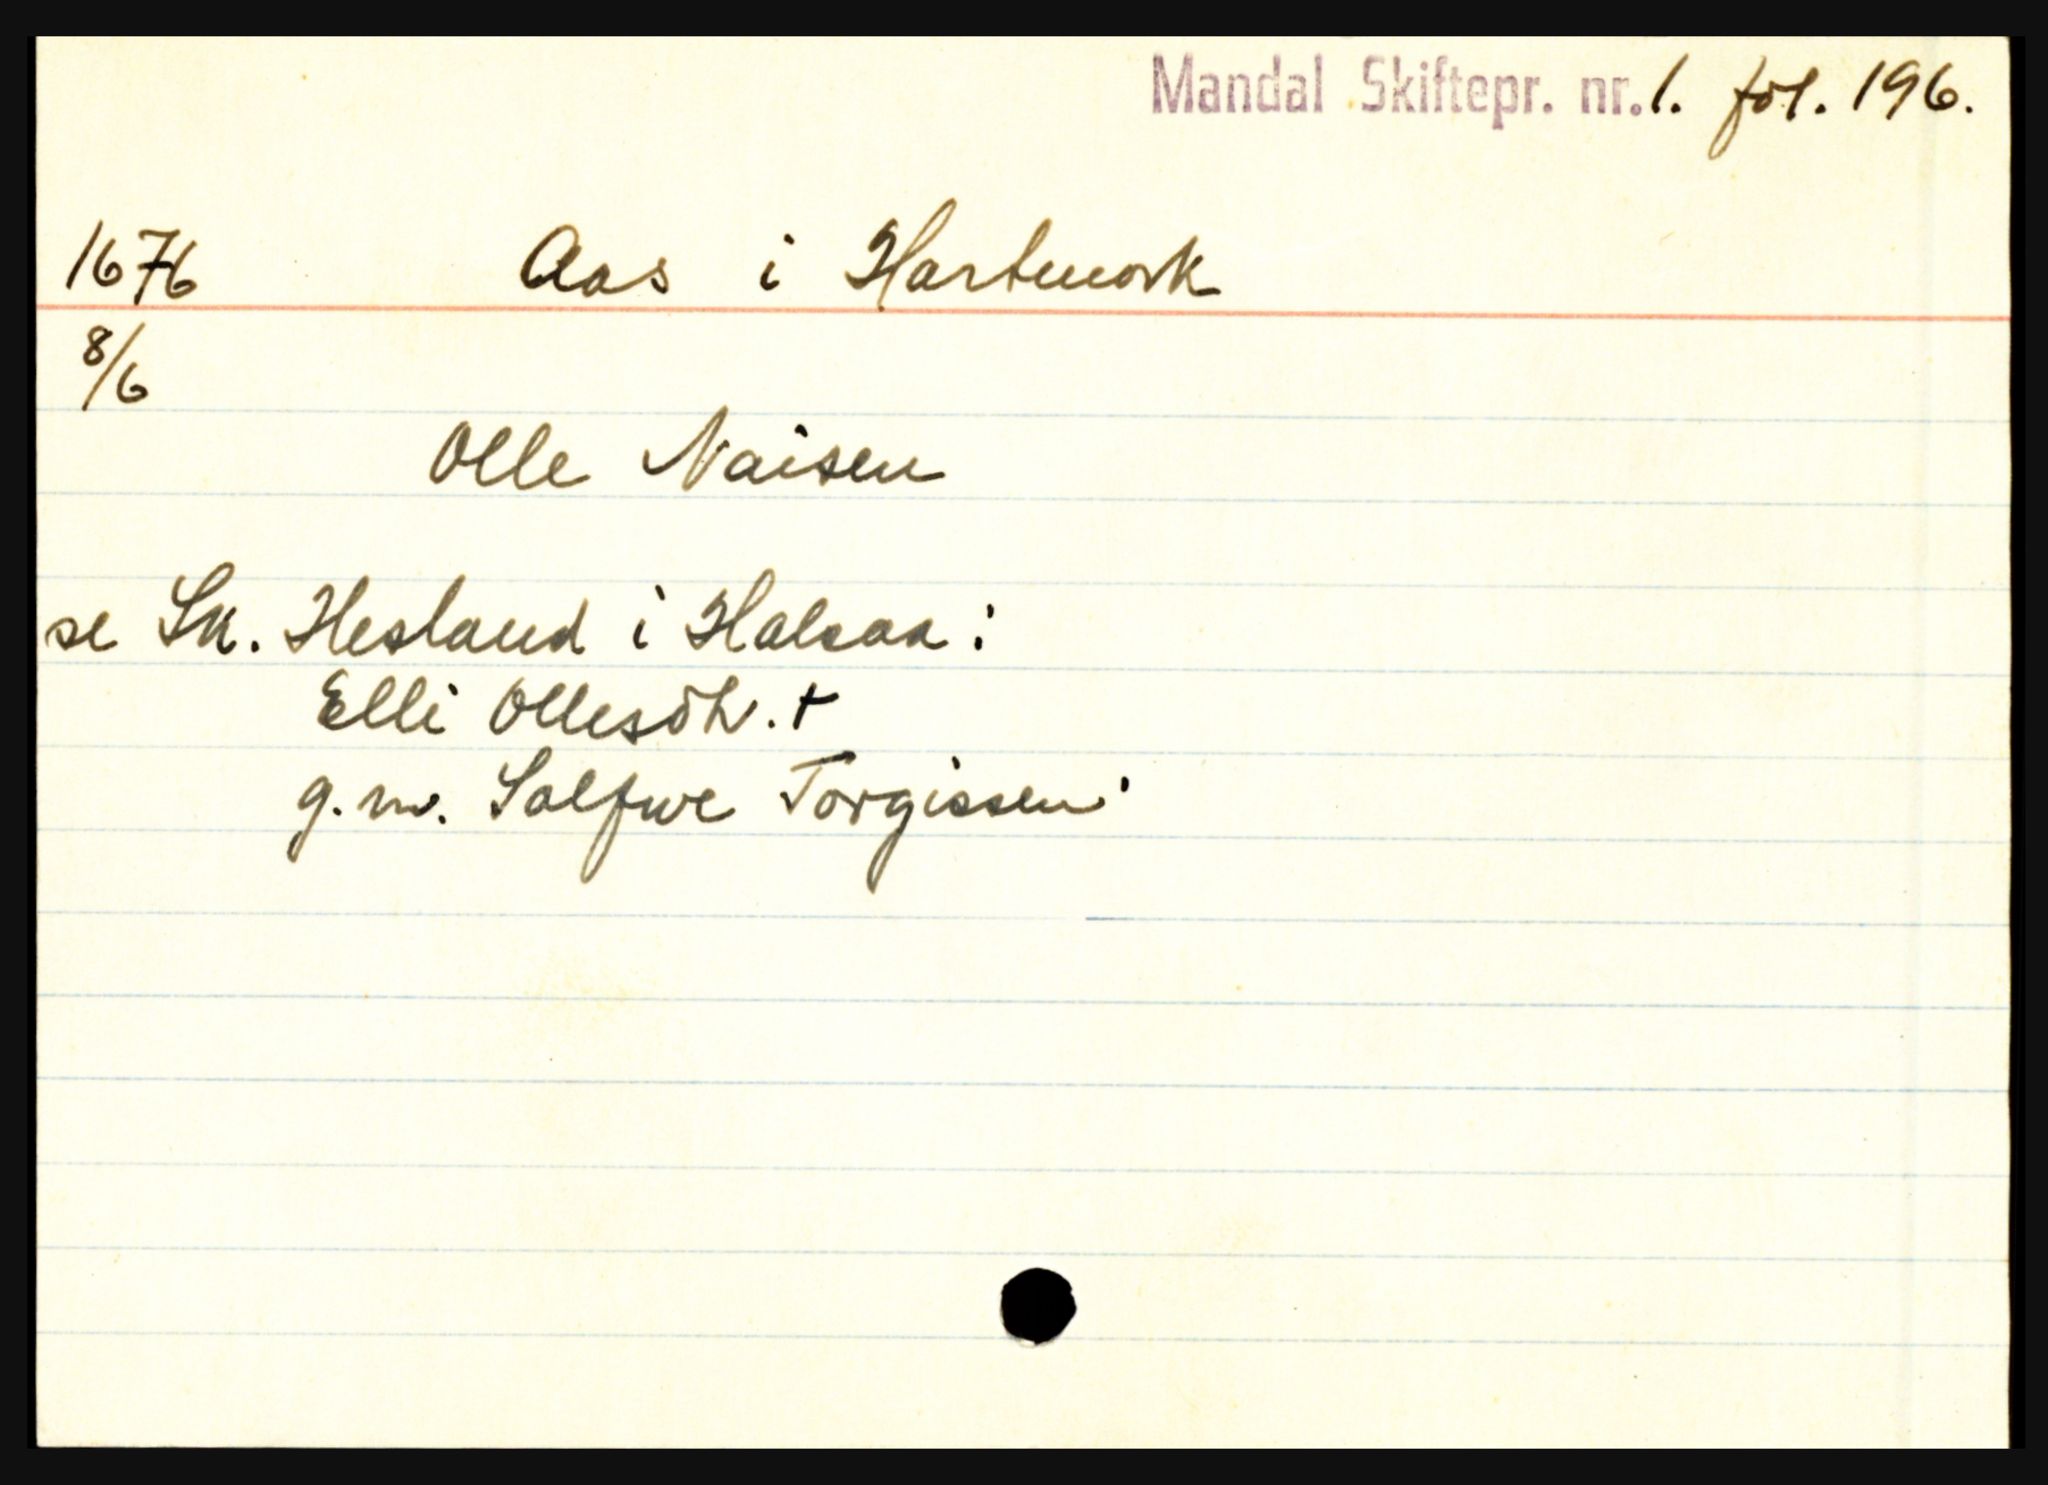 Mandal Skiftepr. nr. 1. fol. 196.
1676 Aas i Hartmork
8/6
Olle Naisen
se Sk. Hesland i Halsaa:
Elli Ollesdtr. +
g.m. Salfwe Torgissen